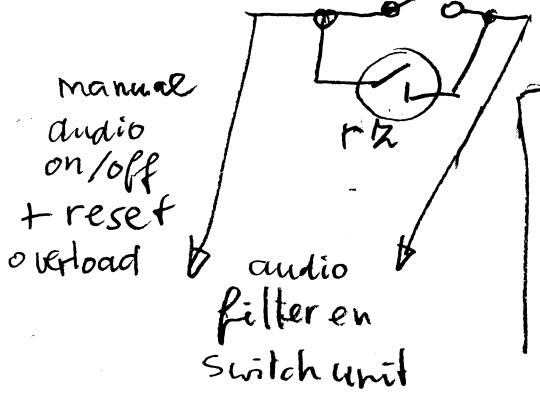 manual
audio
on/off
+ reset
overload
audio
filter en
switch unit